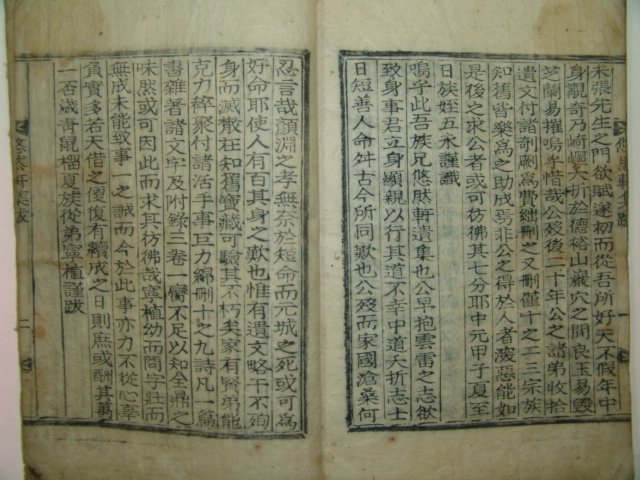 朱張先生之門欲賦遂初而從吾所好天不假年中
身覯奇乃崎嶇夭折於德裕山巖穴之間良玉易毁
芝蘭易摧嗚乎惜哉公歿後二十年公之諸弟收拾
遺文付諸奇劂爲費絀刪之又刪僅十之二三宗族
知舊皆樂爲之助成焉非公之得於人者深惡能如
是後之求公者或可彷彿其七分耶中元甲子夏至
日族姪五永謹識
嗚乎此吾族兄悠然軒遺集也公早抱雲霄之志欲
致身事君立身顯親以行其道不幸中道夭折志士
日短善人命舛古今所同歎也公歿而家國滄桑何
忍言哉顔淵之孝無奈於短命而元城之死或可爲
好命耶使人有百其身之歎也惟有遺文略干不殉
身而滅散在知舊寶藏可驗其不朽矣家有賢弟能
克力粹聚付諸活手事巨力綿刪十之九詩凡一篇
書雜著諸文字及附錄三卷一臠不足以知全鼎之
味然或可因此而求其彷彿哉寧植幼而問字壯而
無成未能致事一之誠而今於此事亦力不從心辜
負實多若天借之便復有續成之日則庶或酬其萬
一否歲靑鼠榴夏族從弟寧植謹跋
悠然軒集跋
二
悠然軒集跋
一